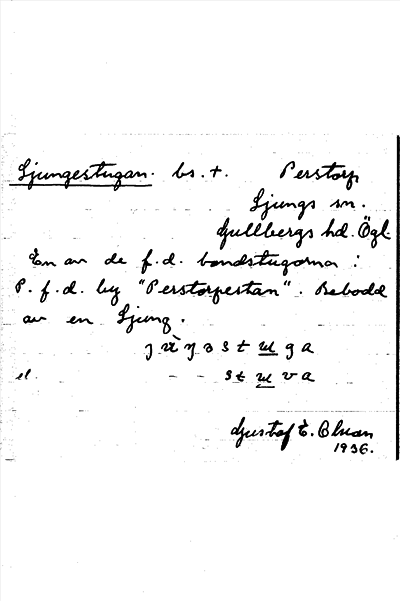 Ljungestugan. bs. t. Perstorp
Ljungs sn.
Gullbergs hd. Ögl.
En av de f.d. bondstugorna i
P. f.d. by "Perstorpestan". Bebodd
av en Ljung.
st u g a
el. - - st u v a
Gustaf E.
1936.